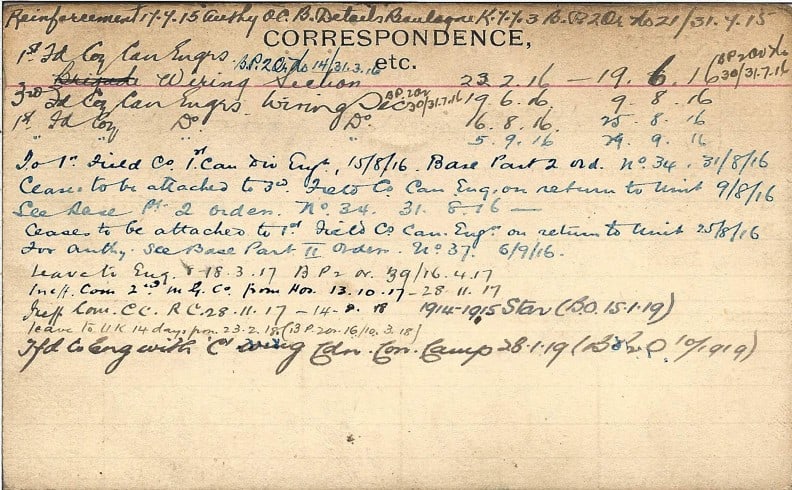 Reinforcement 17.7.15 Authy O.C. B. Details Boulogne K.Y.Y.3 B.P.2 Or. No 21/31.7.15
CORRESPONDENCE,
etc.
1st Fd Coy Can Engrs B.P.2 Or. No 14/31.3.16 B.P.2 Or No 30/31.7.16
Brigade Wiring Section 23.2.16 — 19.6.16
3rd Fd Coy Can Engrs. Wiring Sec B.P.2 Or 30/31.7.16 19.6.16. 9.8.16
1st Fd Coy Do Do 16.8.16 25.8.16
" " " 5.9.16 29.9.16
To 1st Field Co 1st Can Div Eng., 15/8/16. Base Part 2 ord. No. 34. 31/8/16
Ceases to be attached to 3rd. Field Co Can. Eng. on return to Unit 9/8/16
See Base Pt. 2 orders. No. 34. 31.8.16 —
Ceases to be attached to 1st Field Co Can. Engrs on return to Unit 25/8/16
For authy. see Base Part II Orders. No. 37. 6/9/16.
Leave to Eng. 18.3.17 B P 2 or. 39/16.4.17
Ineff. Com 2nd M.G. Co. from Hos. 13.10.17 — 28.11.17
Ineff Com. C.C. R.C. 28.11.17 — 14.2.18 1914-1915 Star (B.O. 15.1.19)
leave to U.K 14 days from 23.2.18 (B P 2 or. 16/10.3.18)
Tfd to Eng with "C" wing Cdn. Con. Camp 28.1.19 (10/1919)